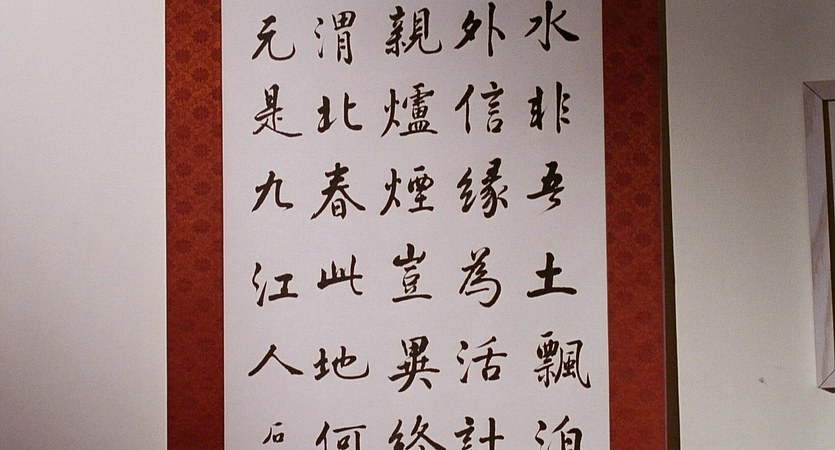 水非吾土飄泊
外信緣為活計
親爐煙豈異終
渭北春此地何
元是九江人石